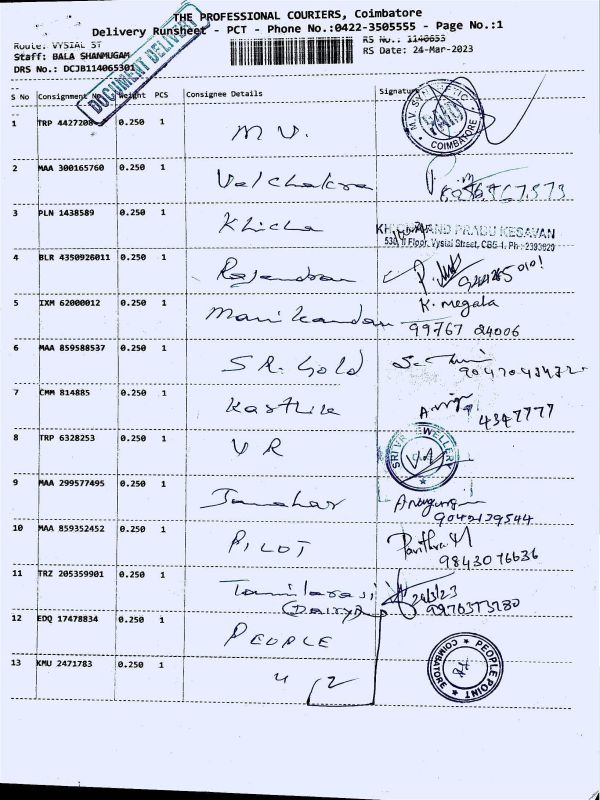 THE PROFESSIONAL COURIERS, Coimbatore
Delivery Runsheet - PCT - Phone No.:0422-3505555 - Page No.:1
Route: VYSIAL ST RS No.: 1140653
Staff: BALA SHANMUGAM RS Date: 24-Mar-2023
DRS No.: DCJB114065301
DOCUMENT DELIVERY
S No Consignment No Weight PCS Consignee Details Signature
1 TRP 4427208 0.250 1 M V. M.V. COIMBATORE
2 MAA 300165760 0.250 1 Velchakra
3 PLN 1438589 0.250 1 Khicha PRABU KESAVAN
530, II Floor, Vysial Street, CBE-1. Ph:
4 BLR 4350926011 0.250 1 Rajendran
5 IXM 62000012 0.250 1 Manikandan K. Megala
99767 04006
6 MAA 859588537 0.250 1 S R. Gold
7 CMM 814885 0.250 1 Karthik
4347777
8 TRP 6328253 0.250 1 V R SRI VR JEWELLERY
9 MAA 299577495 0.250 1 Janahar
9042129544
10 MAA 859352452 0.250 1 PILOT Pavithra M
9843076636
11 TRZ 205359901 0.250 1 Tamilarasi 24/3/23
(Dairy)
12 EDQ 17478834 0.250 1 PEOPLE PEOPLE POINT COIMBATORE
13 KMU 2471783 0.250 1 " 2